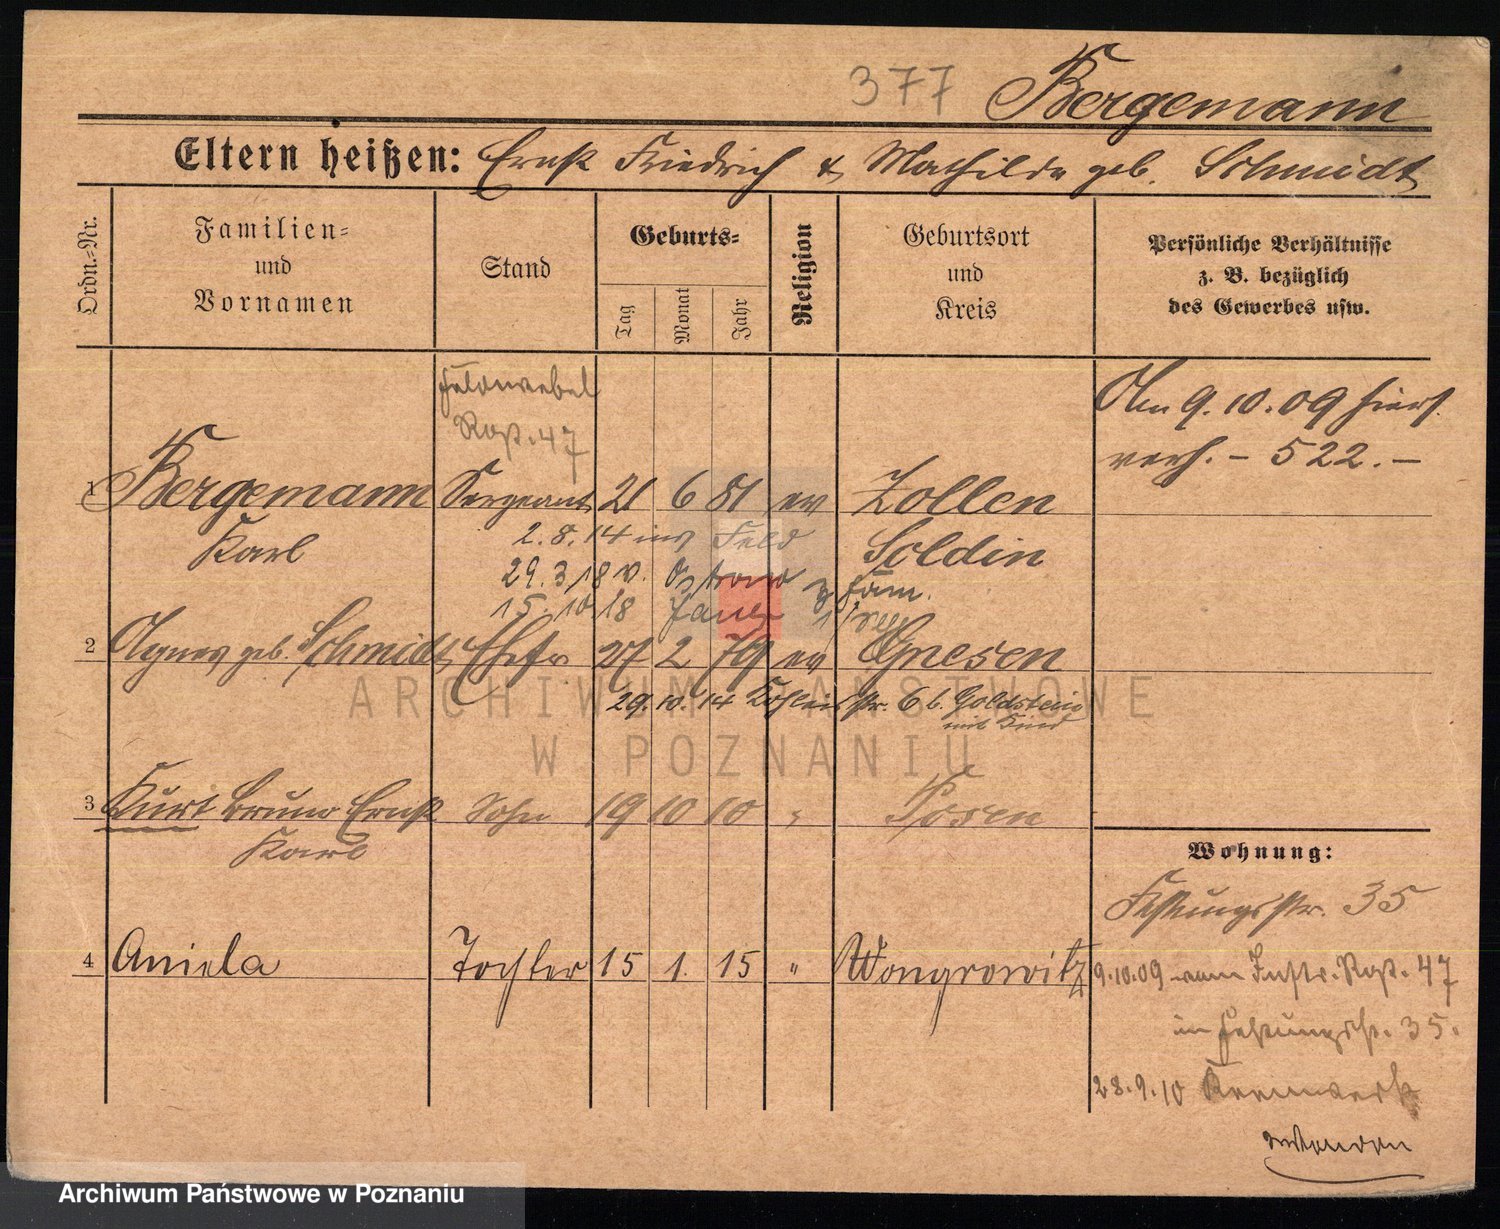 377 Bergemann
Eltern heißen: Ernst Friedrich & Mathilde geb. Schmidt
Ordn.-Nr.
Familien-
und
Vornamen
Stand
Geburts-
Tag
Monat
Jahr
Religion
Geburtsort
und
Kreis
Persönliche Verhältnisse
z. B. bezüglich
des Gewerbes usw.
Feldwebel
Rgt. 47
Am 9.10.09 hiers.
verh. – 522. –
1 Bergemann Sergeant 21 6 81 ev Zollen
Karl
Soldin
2.8.14 ins Feld
29.3.18 v.
15.10.18
2 Agnes geb. Schmidt Ehefr 27 2 79 ev Gnesen
29.10.14 str. 6 b. Goldstein
mit Kind
ARCHIWUM PAŃSTWOWE
W POZNANIU
3 Kurt Bruno Ernst Sohn 19 10 10 " Posen
Karl
4 Aniela Tochter 15 1. 15 " Wongrowitz
Wohnung:
Festungsstr. 35
9.10.09 vom Inftr. Rgt. 47
in Festungsstr. 35.
28.9.10 Kernwerk
Archiwum Państwowe w Poznaniu